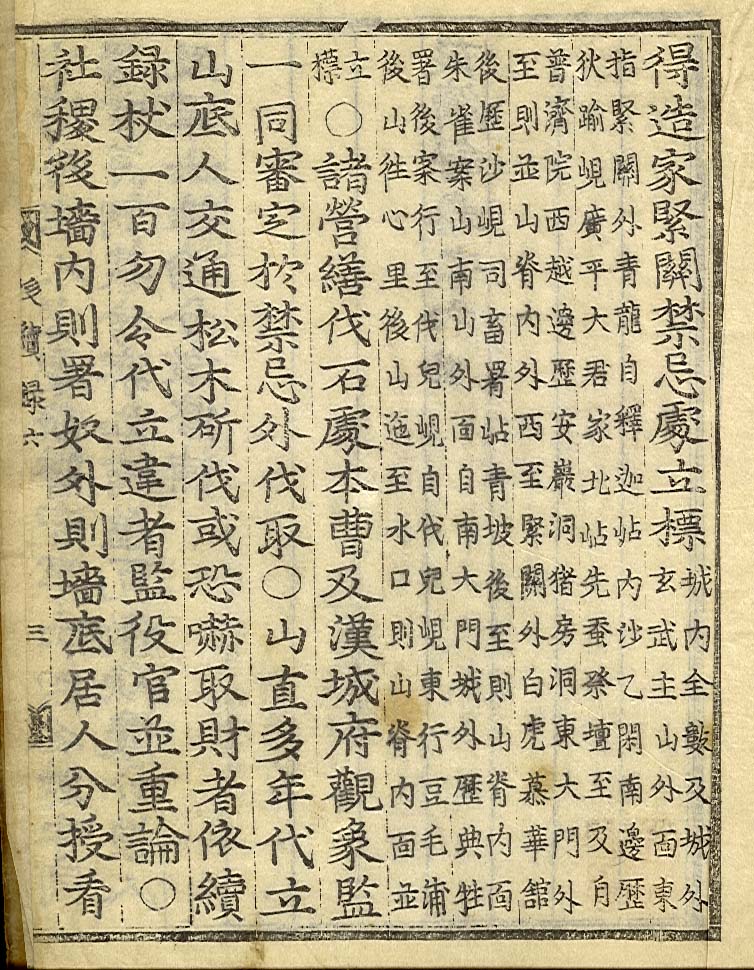 得造家緊關禁忌處立標城内全數及城外
玄武主山外面東
指緊關外青龍自釋迦岾内沙乙閑南邊歷
狄踰峴廣平大君家北岾先蚕祭壇至及自
普濟院西越邊歷安巖洞猪房洞東大門外
至則並山脊内外西至緊關外白虎慕華舘
後歷沙峴司畜署岾青坡後至則山脊内面
朱雀案山南山外面自南大門城外歷典牲
署後家行至伐兒峴自伐兒峴東行豆毛浦
後山徃心里後山迤至水口則山脊内面並
立
標○諸營繕伐石處本曹及漢城府觀象監
一同審定於禁忌外伐取○山直多年代立
山底人交通松木斫伐或恐嚇取財者依續
録杖一百勿令代立違者監役官並重論○
社稷後墻内則署奴外則墻底居人分授看
後續録六
三